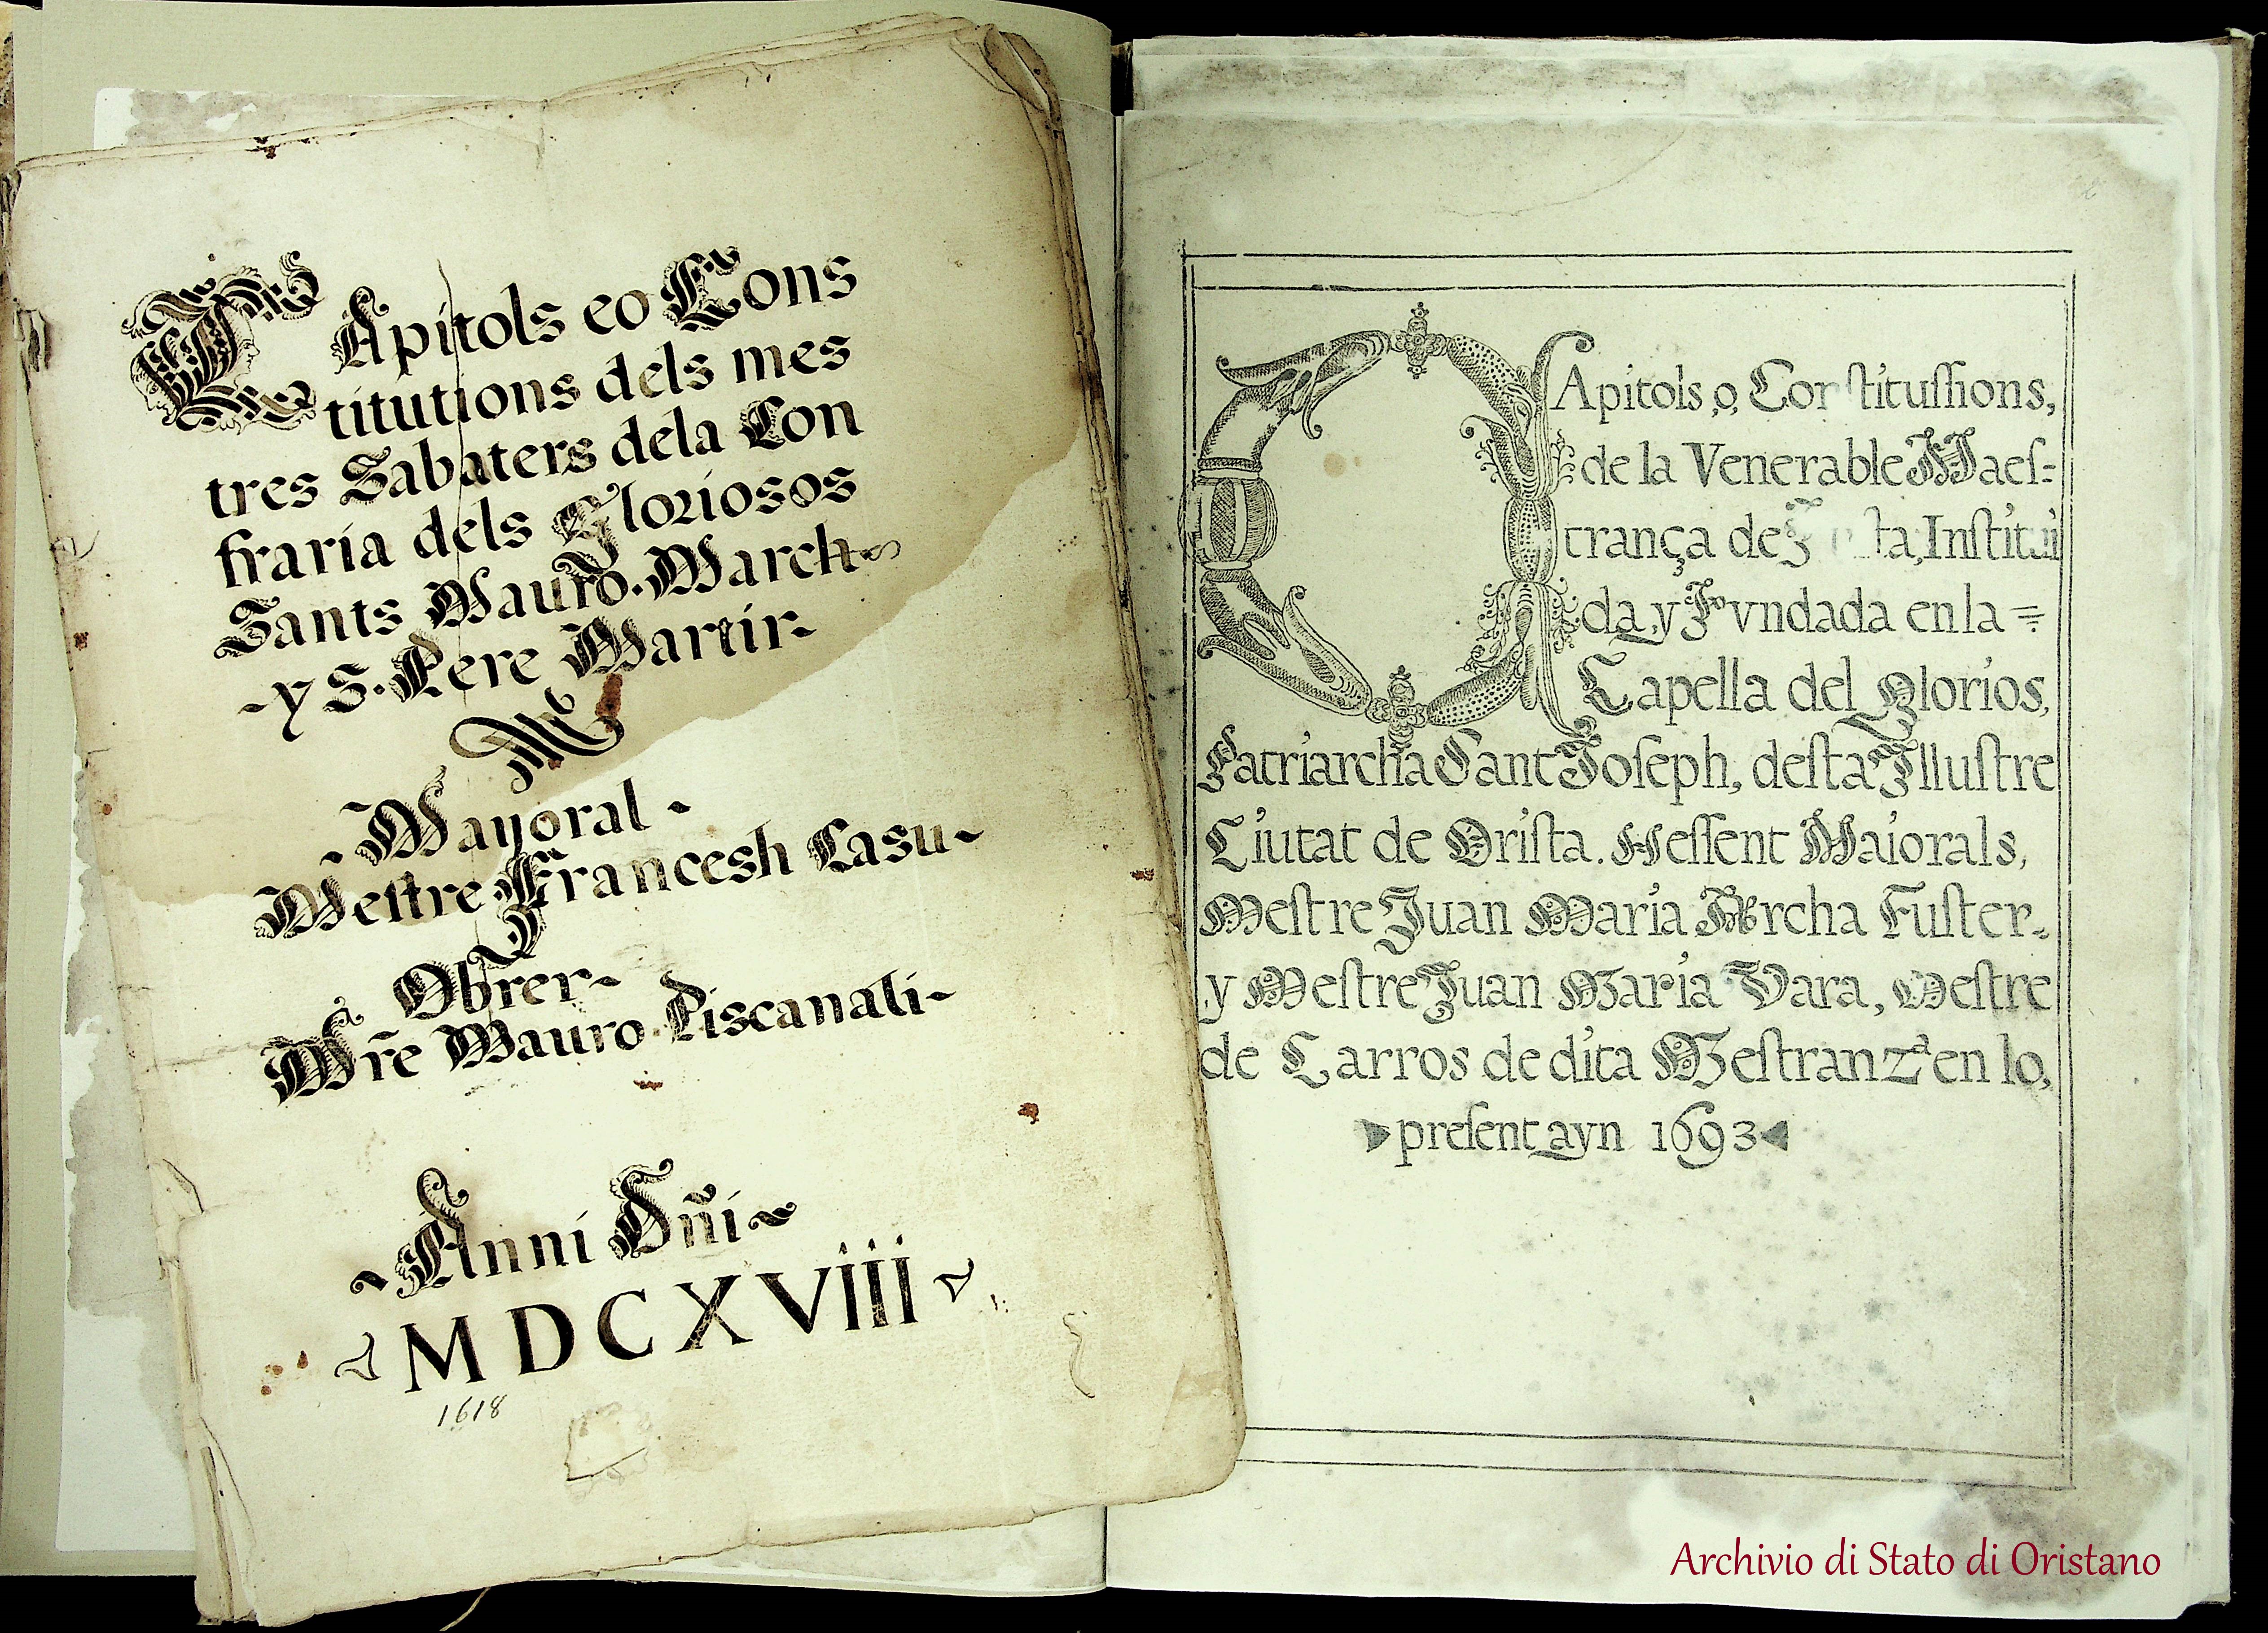 CApitols eo Cons
titutions dels mes
tres Sabaters dela Con
fraria dels Gloriosos
Sants Mauro. March
y S. Pere Martir
Mayoral
Mestre Francesh Casu
Obrer
Mr̃e Mauro Piscanali
Anni Dñi
MDCXVIII
1618
CApitols, o, Constitussions,
de la Venerable Maes-
trança de ta, Institui
da, y Fvndada en la
Capella del glorios,
Patriarcha Sant Joseph, desta Illustre
Ciutat de Orista. Hessent Maiorals,
Mestre Juan Maria Fuster
y Mestre Juan Maria Vara, Mestre
de Carros de dita Mestranzª en lo,
present ayn 1693
Archivio di Stato di Oristano